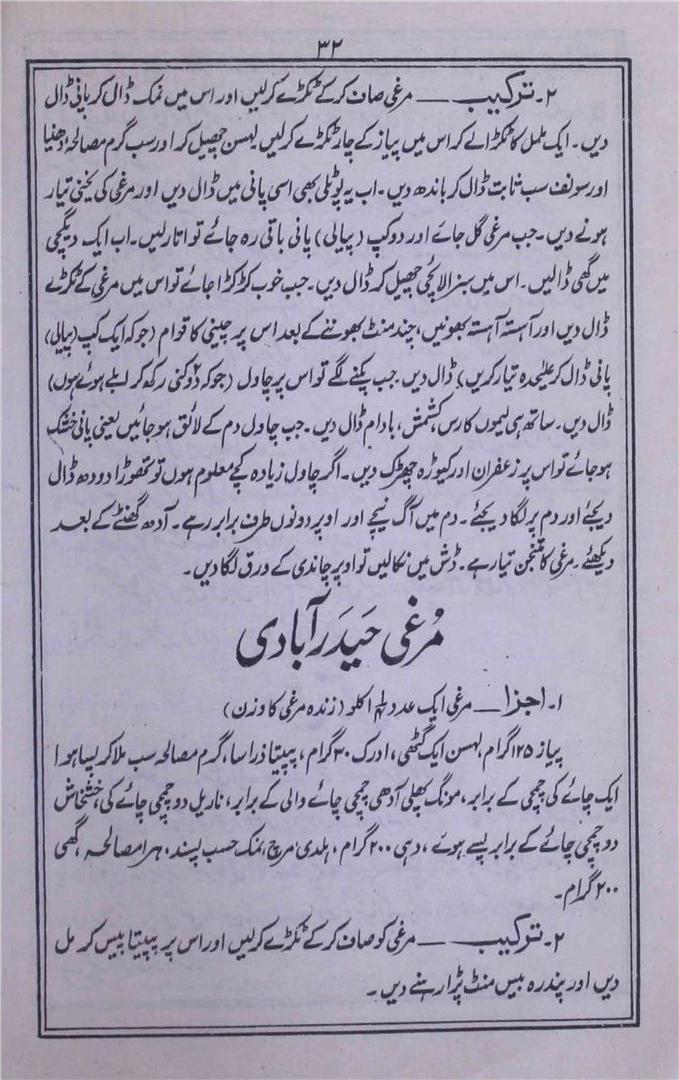 ۳۲
۲۔ ترکیب ــــــ مرغی صاف کرکے ٹکڑے کرلیں اور اس میں نمک ڈال کر پانی ڈال
دیں۔ ایک ململ کا ٹکڑا لے کر اس میں پیاز کے چار ٹکڑے کرلیں لہسن چھیل کر اور سب گرم مصالحہ دھنیا
اور سونف سب ثابت ڈال کر باندھ دیں۔ اب یہ پوٹلی بھی اسی پانی میں ڈال دیں اور مرغی کی یخنی تیار
ہونے دیں۔ جب مرغی گل جائے اور دو کپ (پیالی) پانی باقی رہ جائے تو اتار لیں۔ اب ایک دیگچی
میں گھی ڈالیں۔ اس میں سبز الائچی چھیل کر ڈال دیں۔ جب خوب کڑکڑا جائے تو اس میں مرغی کے ٹکڑے
ڈال دیں اور آہستہ آہستہ بھونیں، چند منٹ بھوننے کے بعد اس پر چینی کا قوام (جوکہ ایک کپ (پیالی)
پانی ڈال کر علیٰحدہ تیار کریں) ڈال دیں۔ جب پکنے لگے تو اس پر چاول (جوکہ دوکنی رکھ کر ابلے ہوئے ہوں)
ڈال دیں۔ ساتھ ہی لیموں کا رس، کشمش، بادام ڈال دیں۔ جب چاول دم کے لائق ہوجائیں یعنی پانی خشک
ہوجائے تو اس پر زعفران اور کیوڑہ چھڑک دیں۔ اگر چاول زیادہ کچے معلوم ہوں تو تھوڑا دودھ ڈال
دیجئے اور دم پر لگا دیجئے۔ دم میں آگ نیچے اور اوپر دونوں طرف برابر رہے۔ آدھ گھنٹے کے بعد
دیکھئے۔ مرغی کا متنجن تیار ہے۔ ڈش میں نکالیں تو اوپر چاندی کے ورق لگا دیں۔
مُرغی حَیدَرآبادی
۱۔ اجزا ــــ مرغی ایک عدد ۱کلو (زندہ مرغی کا وزن)
پیاز ۱۲۵ گرام، لہسن ایک گٹھی، ادرک ۳۰ گرام، پپیتا ذرا سا، گرم مصالحہ سب ملا کر پسا ہوا
ایک چائے کی چمچی کے برابر، مونگ پھلی آدھی چمچی چائے والی کے برابر، ناریل دو چمچی چائے کی، خشخاش
دو چمچی چائے کے برابر پسے ہوئے، دہی ۲۰۰ گرام، ہلدی، مرچ، نمک حسب پسند، ہرا مصالحہ، گھی
۲۰۰ گرام۔
۲۔ ترکیب ــــــ مرغی کو صاف کرکے ٹکڑے کرلیں اور اس پر پپیتا پیس کر مل
دیں اور پندرہ بیس منٹ پڑا رہنے دیں۔